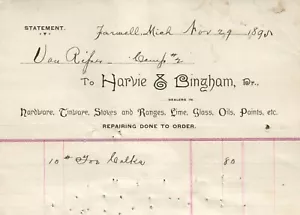 STATEMENT.
Farwell, Mich Nov 29 1895
Van Riper Camp #2
To Harvie & Bingham, Dr.,
DEALERS IN
Hardware, Tinware, Stoves and Ranges, Lime, Glass, Oils, Paints, etc.
REPAIRING DONE TO ORDER.
10 # Toe Calks 80